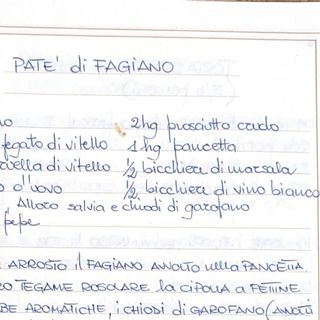 PATE' di FAGIANO
no 2hg prosciutto crudo
fegato di vitello 1hg pancetta
vella di vitello 1/2 bicchiere di marsala
o d'uovo 1/2 bicchiere di vino bianco
Alloro salvia e chiodi di garofano
pepe
ARROSTO il FAGIANO AVVOLTO nella PANCETTA.
RO TEGAME ROSOLARE la CIPOLLA A FETTINE
BE AROMATICHE, i CHIODI di GAROFANO (AVVOLTI